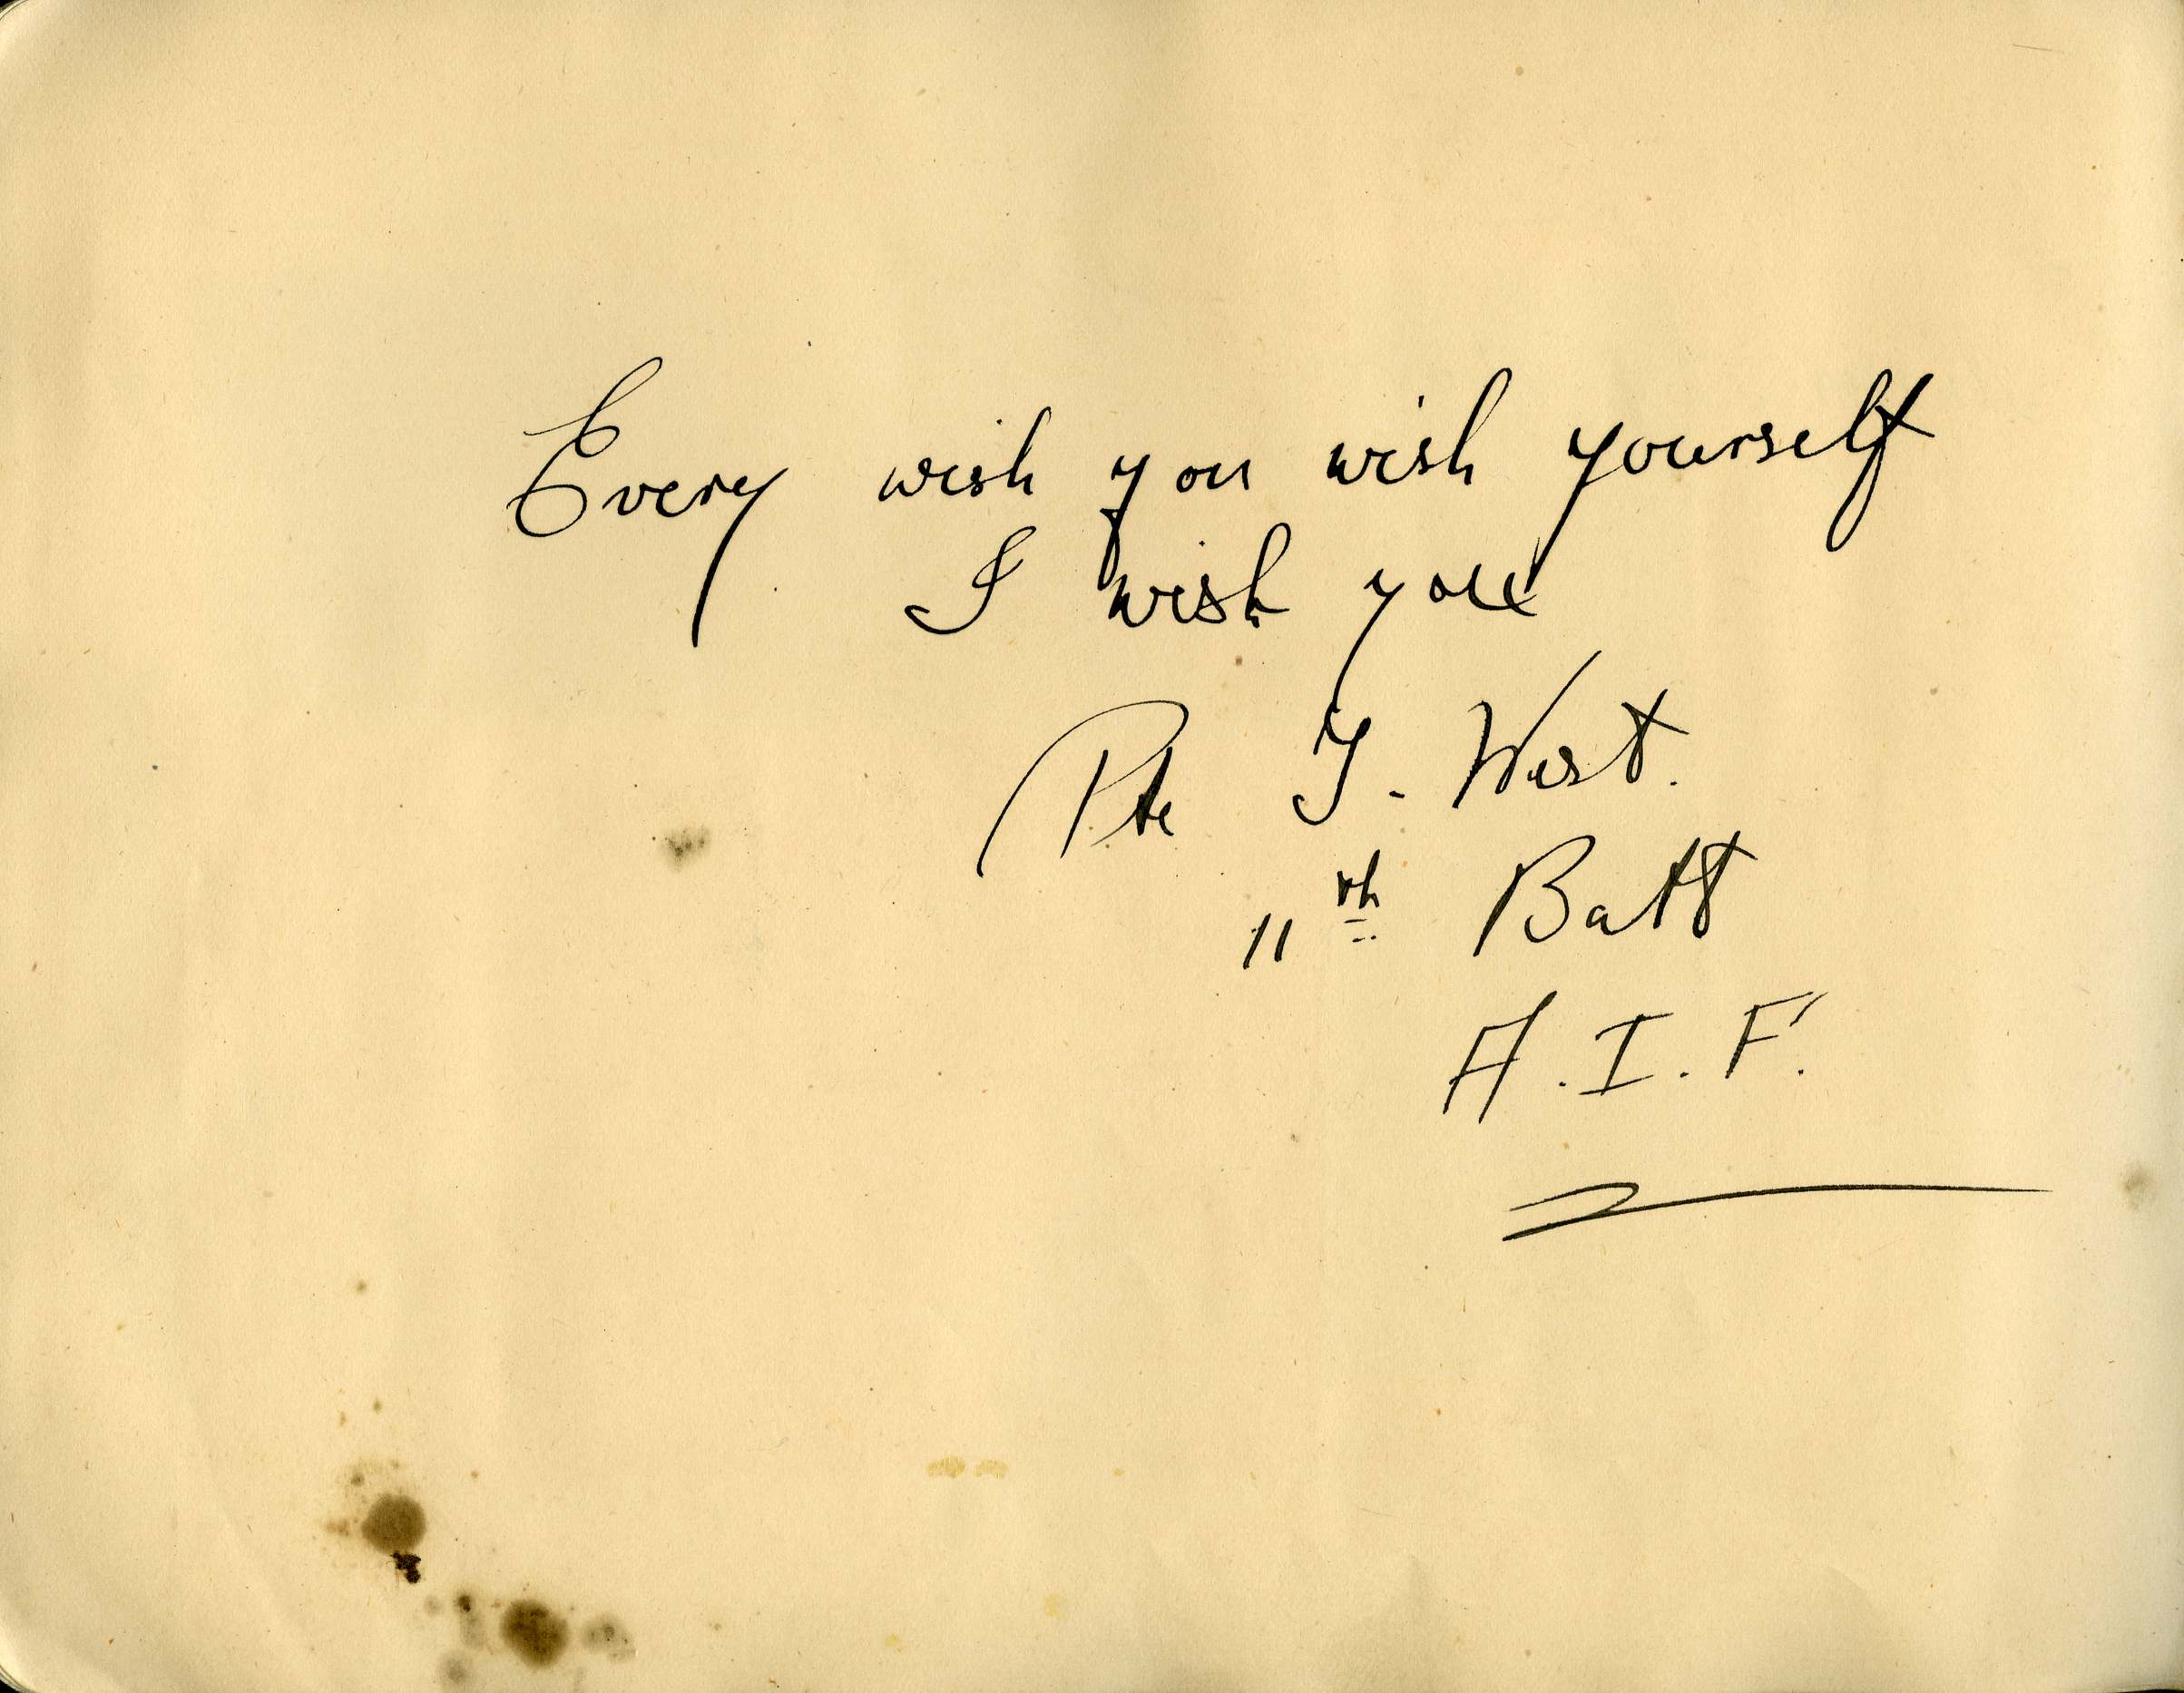 Every wish you wish yourself
I wish you
Pte T. West.
11th Batt
A.I.F.